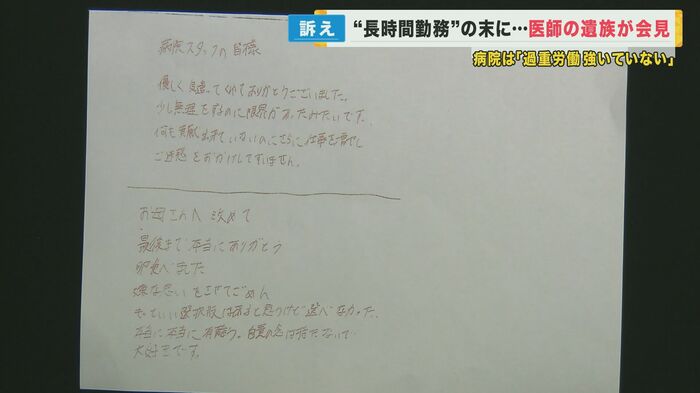 訴え
“長時間勤務”の末に…医師の遺族が会見
病院は「過重労働 強いていない」
病院スタッフの皆様
優しく見護ってくれてありがとうございました。
少し無理をするのに限界があったみたいです。
何も貢献出来ていないのにさらに仕事を増やし
ご迷惑をおかけしてすいません。
お母さんへ 改めて
最後まで本当にありがとう
嫌な思いをさせてごめん
もっといい選択肢はあると思うけど選べなかった、
本当に本当に有難う。自責の念は持たないで
大好きです。